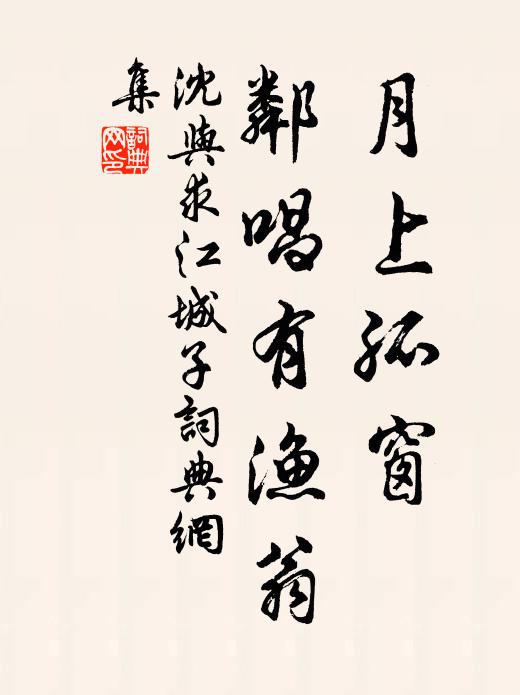 月上孤窗
鄰唱有漁翁
沈與求江城子詞典網
集
詞典
网印